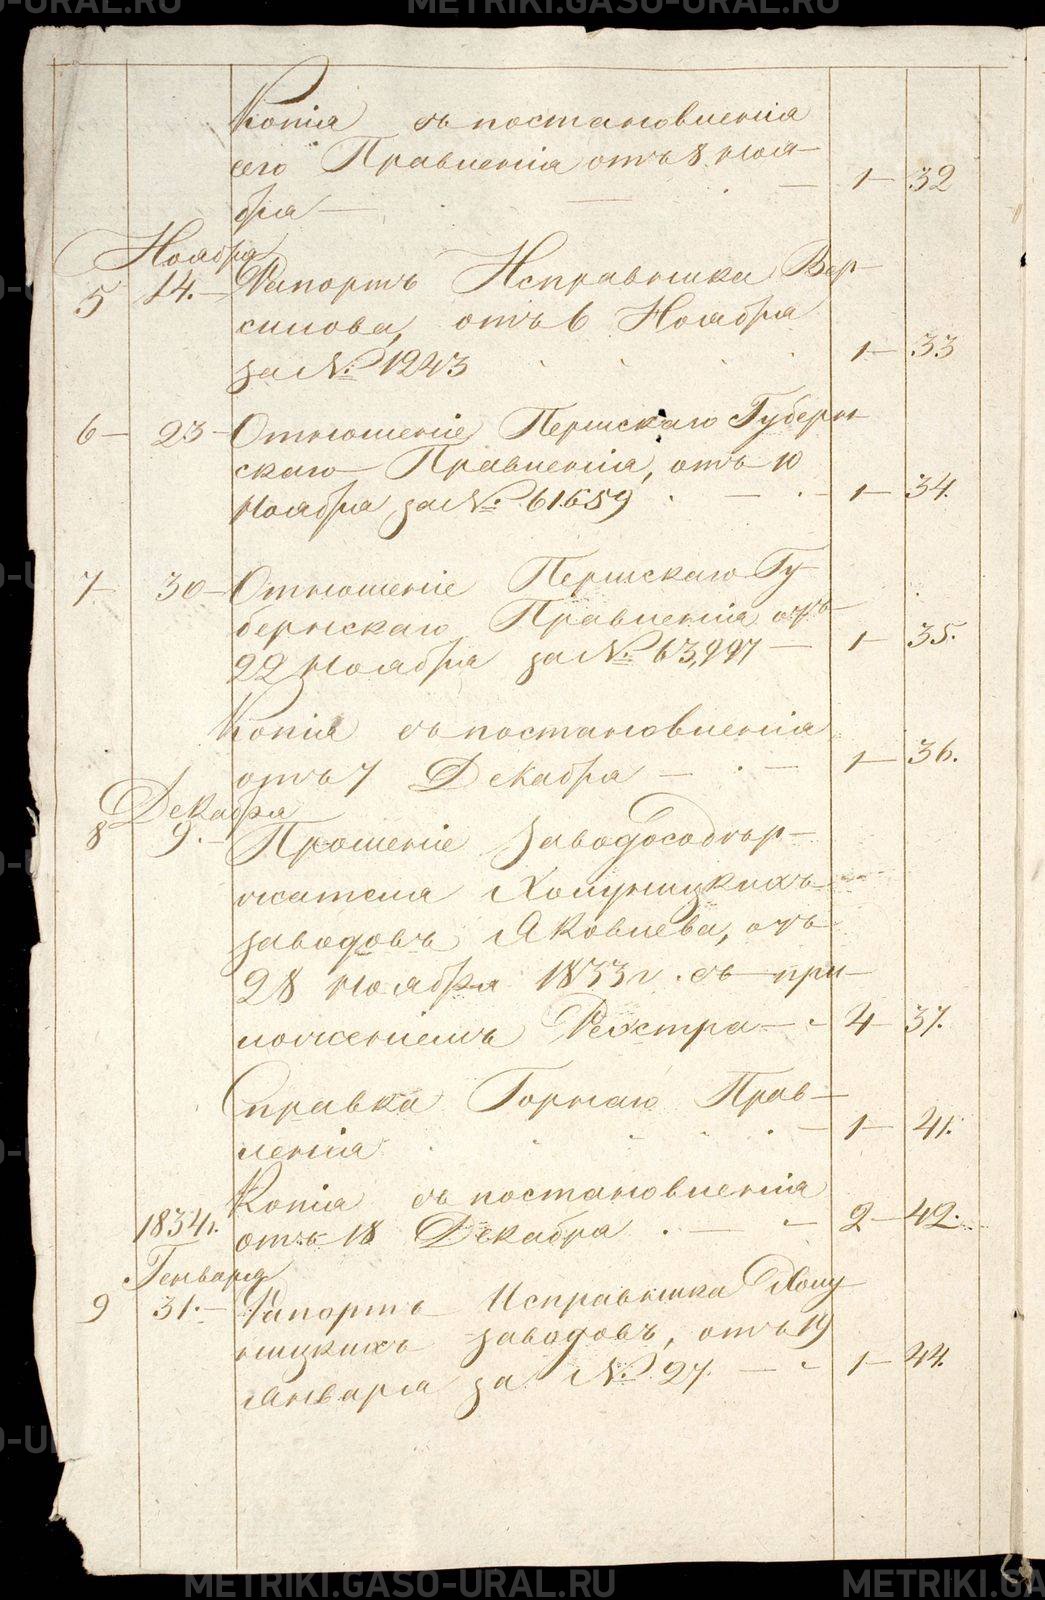 Копія съ постановленія
сего Правленія отъ 8 ноя-
бря — 1 — 32
Ноября
5 14. — Рапортъ Исправника Вер-
силова, отъ 6 Ноября
за №. 1243 1 — 33
6 — 23 — Отношеніе Пермскаго Губерн-
скаго Правленія, отъ 10
Ноября за №. 61.659 1 — 34.
7 — 30 — Отношеніе Пермскаго Гу-
бернскаго Правленія отъ
22 Ноября за №. 63,997 — 1 — 35.
Копія съ постановленія
отъ 7 Декабря — 1 — 36.
Декабря
8 9. — Прошеніе Заводосодер-
жателя Холуницкихъ
заводовъ Яковлева, отъ
28 Ноября 1833 г. съ при-
ложеніемъ Реэстра — 4 — 37.
Справка Горнаго Прав-
ленія 1 — 41.
Копія съ постановленія
1834 г. отъ 18 Декабря 2 — 42.
Генваря
9 31. — Рапортъ Исправника Холу-
ницкихъ заводовъ, отъ 19
Января за №. 27. — 1 — 44.
METRIKI.GASO-URAL.RU
METRIKI.GASO-URAL.RU